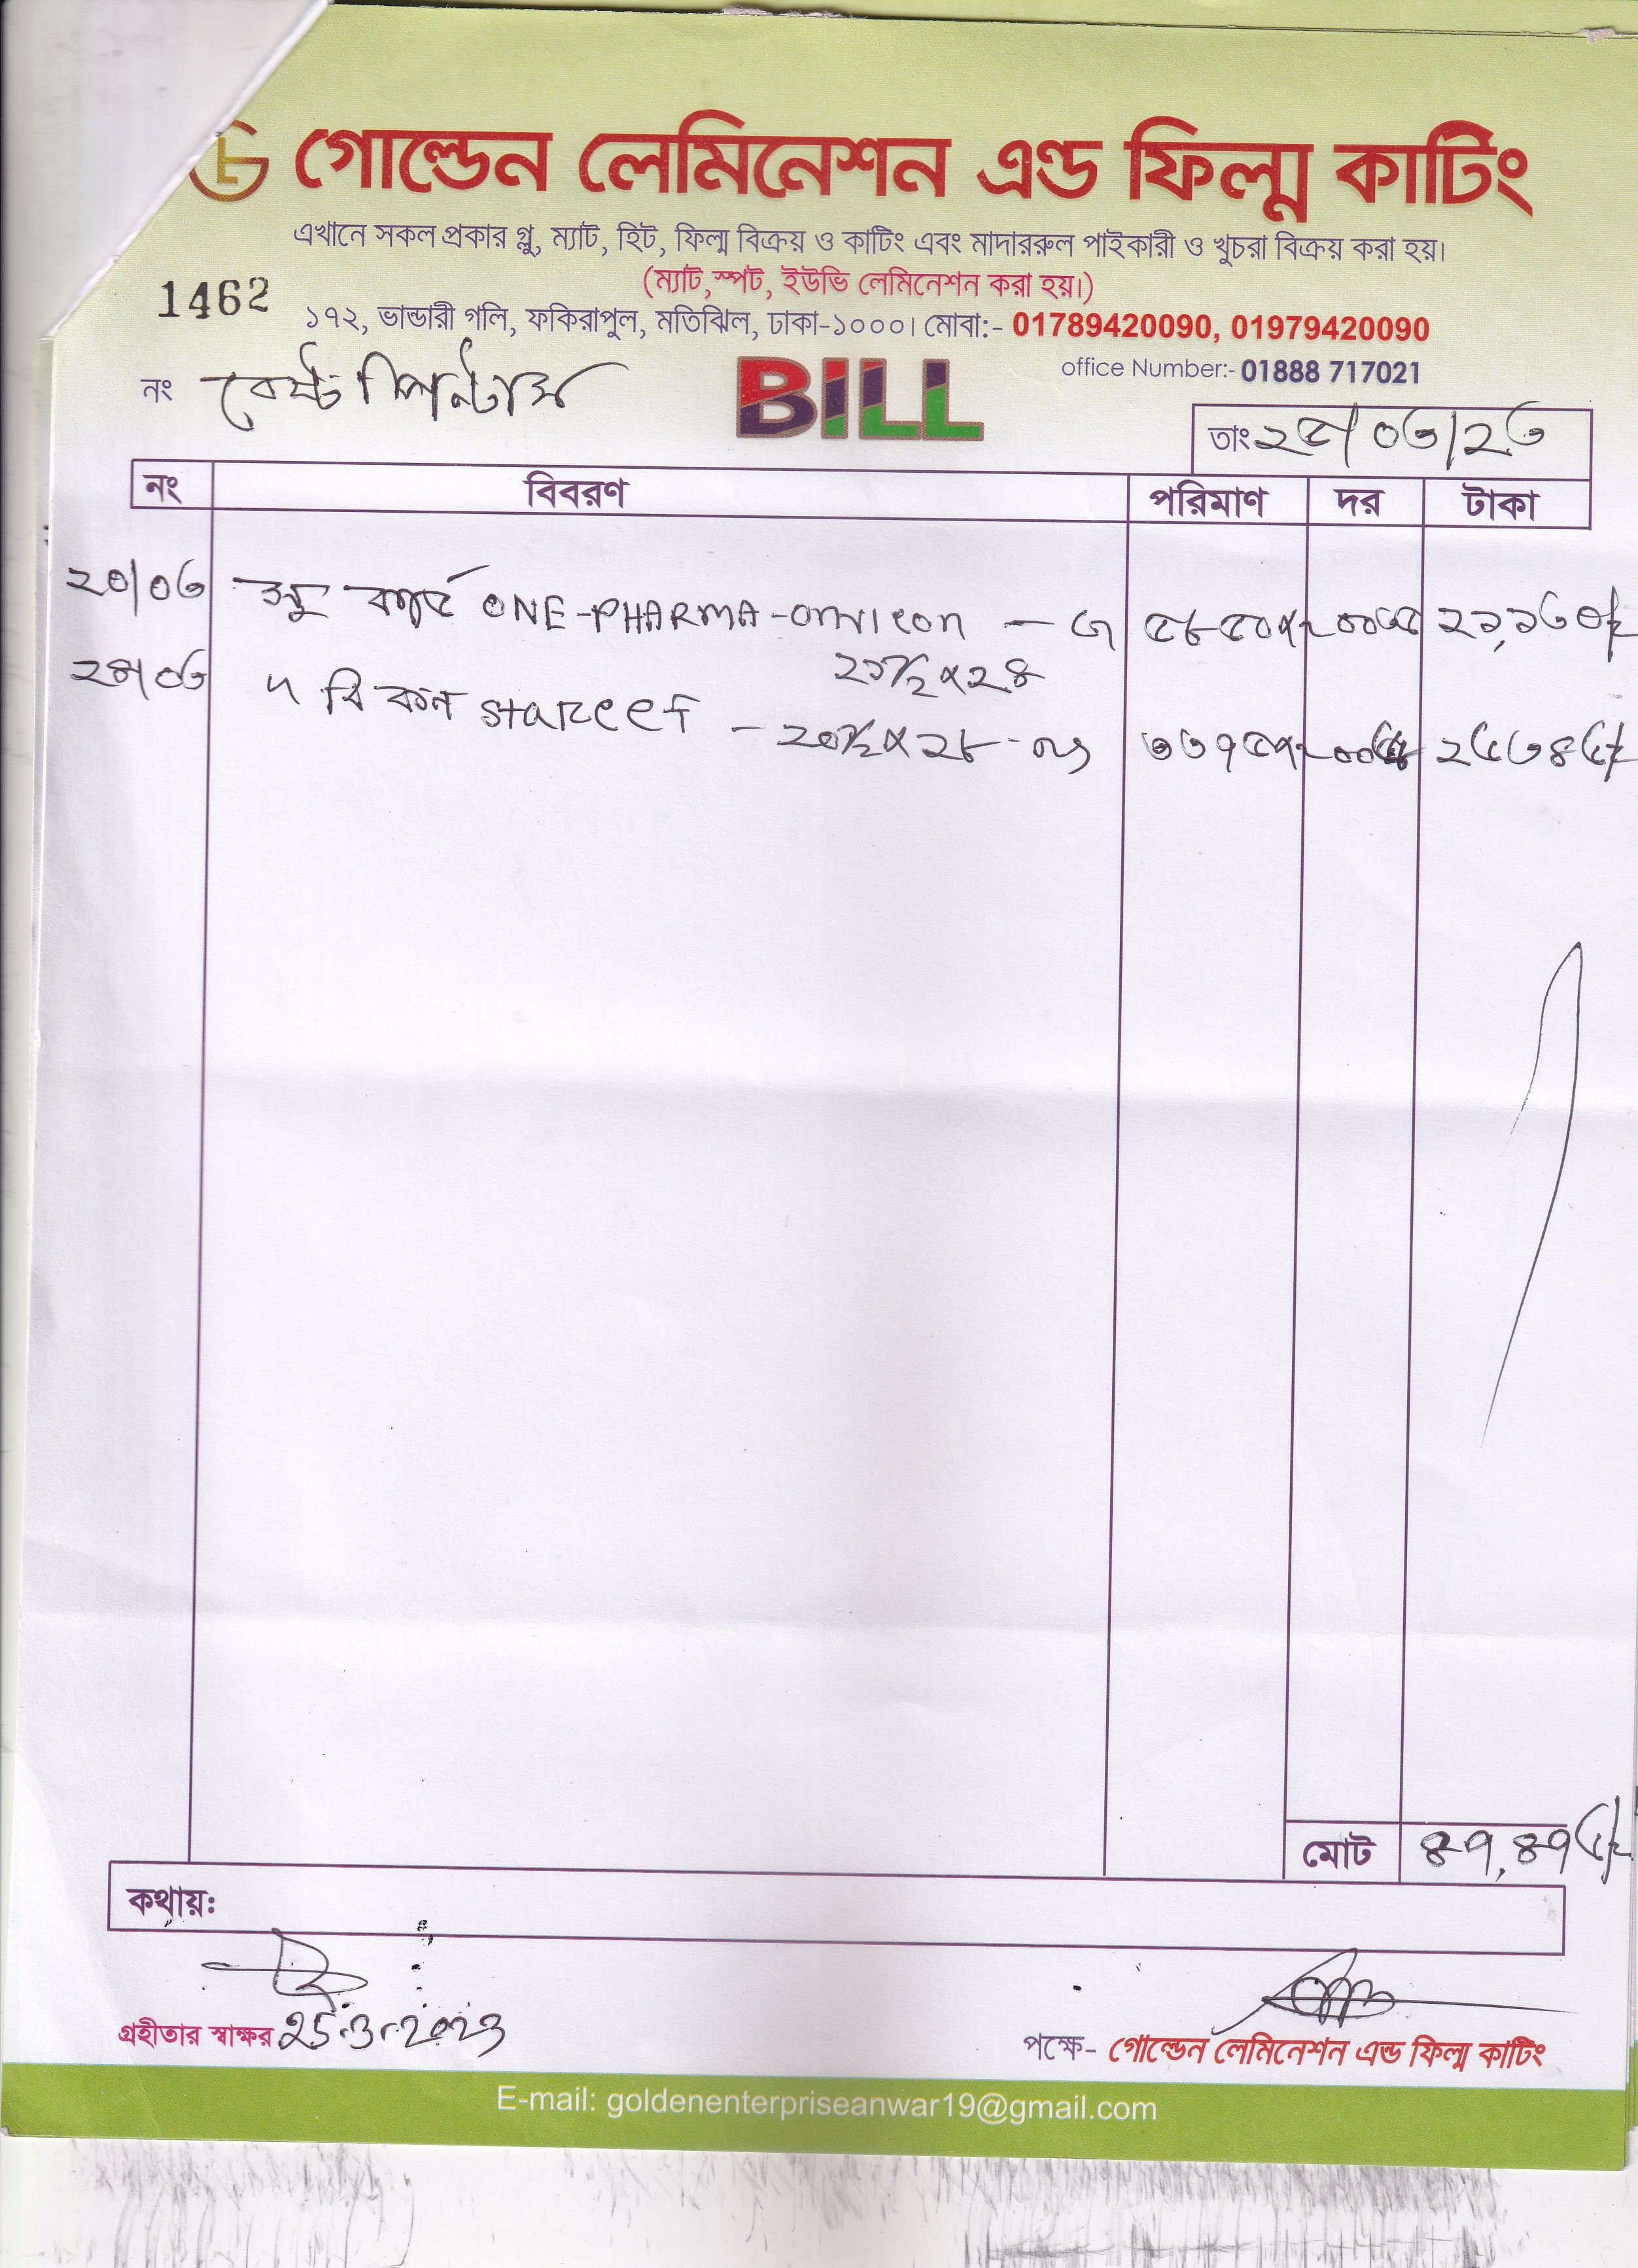 গোল্ডেন লেমিনেশন এন্ড ফিল্ম কাটিং
এখানে সকল প্রকার গ্লু, ম্যাট, হিট, ফিল্ম বিক্রয় ও কাটিং এবং মাদাররুল পাইকারী ও খুচরা বিক্রয় করা হয়।
(ম্যাট,স্পট, ইউভি লেমিনেশন করা হয়।)
1462
১৭২, ভান্ডারী গলি, ফকিরাপুল, মতিঝিল, ঢাকা-১০০০। মোবা:- 01789420090, 01979420090
office Number:- 01888 717021
নং বেষ্ট প্রিন্টার্স
BILL
তাং ২৫/০৩/২৩
নং বিবরণ পরিমাণ দর টাকা
২০/০৩ ONE-PHARMA-omicon - ৫৮৫০ ২১,১৩০/=
২১½ x ২৪
স্টারcef - ২০½ x ২৮ ৩৩৭৫
মোট ৪৭,৪৭৫/=
কথায়:
গ্রহীতার স্বাক্ষর 25.3.2023
পক্ষে- গোল্ডেন লেমিনেশন এন্ড ফিল্ম কাটিং
E-mail: goldenenterpriseanwar19@gmail.com